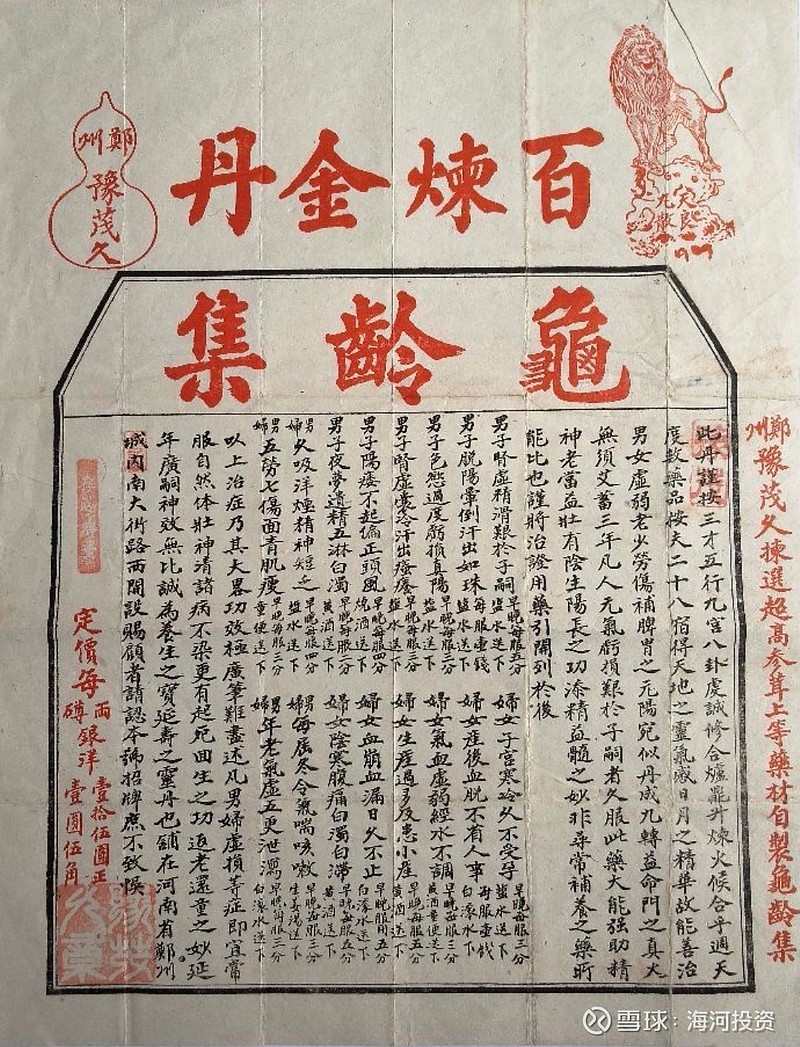 百煉金丹
鄭州
豫茂久
天良
九散
龜齡集
鄭州豫茂久揀選超高參茸上等藥材自製龜齡集
此丹謹按三才五行九宮八卦虔誠修合爐鼎升煉火候合乎週天
度数藥品按天二十八宿得天地之靈氣感日月之精華故能善治
男女虛弱老少勞傷補脾胃之元陽宛似丹成九轉益命門之真火
無須艾蓄三年凡人元氣虧損艱於子嗣者久服此藥大能强助精
神老當益壯有陰生陽長之功添精益髓之妙非尋常補養之藥所
能比也謹將治證用藥引開列於後
男子腎虛精滑艱於子嗣 早晚每服五分 鹽水送下
男子脱陽暈倒汗出如珠 每服壹錢 鹽水送下
男子色慾過度虧損真陽 早晚每服三分 鹽水送下
男子腎虛囊冷汗出瘙癢 早晚每服三分 鹽水送下
男子陽痿不起偏正頭風 早晚每服四分 燒酒送下
男子夜夢遺精五淋白濁 早晚每服二分 黃酒送下
男婦久吸洋煙精神短乏 早晚每服四分 鹽水送下
男婦五勞七傷面青肌瘦 早晚每服三分 童便送下
婦女子宮寒冷久不受孕 早晚每服三分 鹽水送下
婦女產後血脱不省人事 每服壹錢 白滚水下
婦女氣血虛弱經水不調 早晚每服三分 黃酒童便送下
婦女生產過多及患小產 早晚每服五分 黃酒送下
婦女血崩血漏日久不止 早晚服用五分 白滚水送下
婦女陰寒腹痛白濁白滯 早晚每服五分 黃酒送下
男婦每屆冬令氣喘咳嗽 早晚每服三分 生姜湯送下
男婦年老氣虛五更泄瀉 早晚每服三分 白滚水送下
以上治症乃其大畧功效極廣筆難盡述凡男婦虛損等症即宜常
服自然体壯神清諸病不染更有起死回生之功返老還童之妙延
年廣嗣神效無比誠為養生之寶延壽之靈丹也舖在河南省鄭州
城内南大街路西開設賜顧者請認本號招牌庶不致悞
定價每兩銀洋壹拾伍圓正
磚壹圓伍角
雪球：海河投资